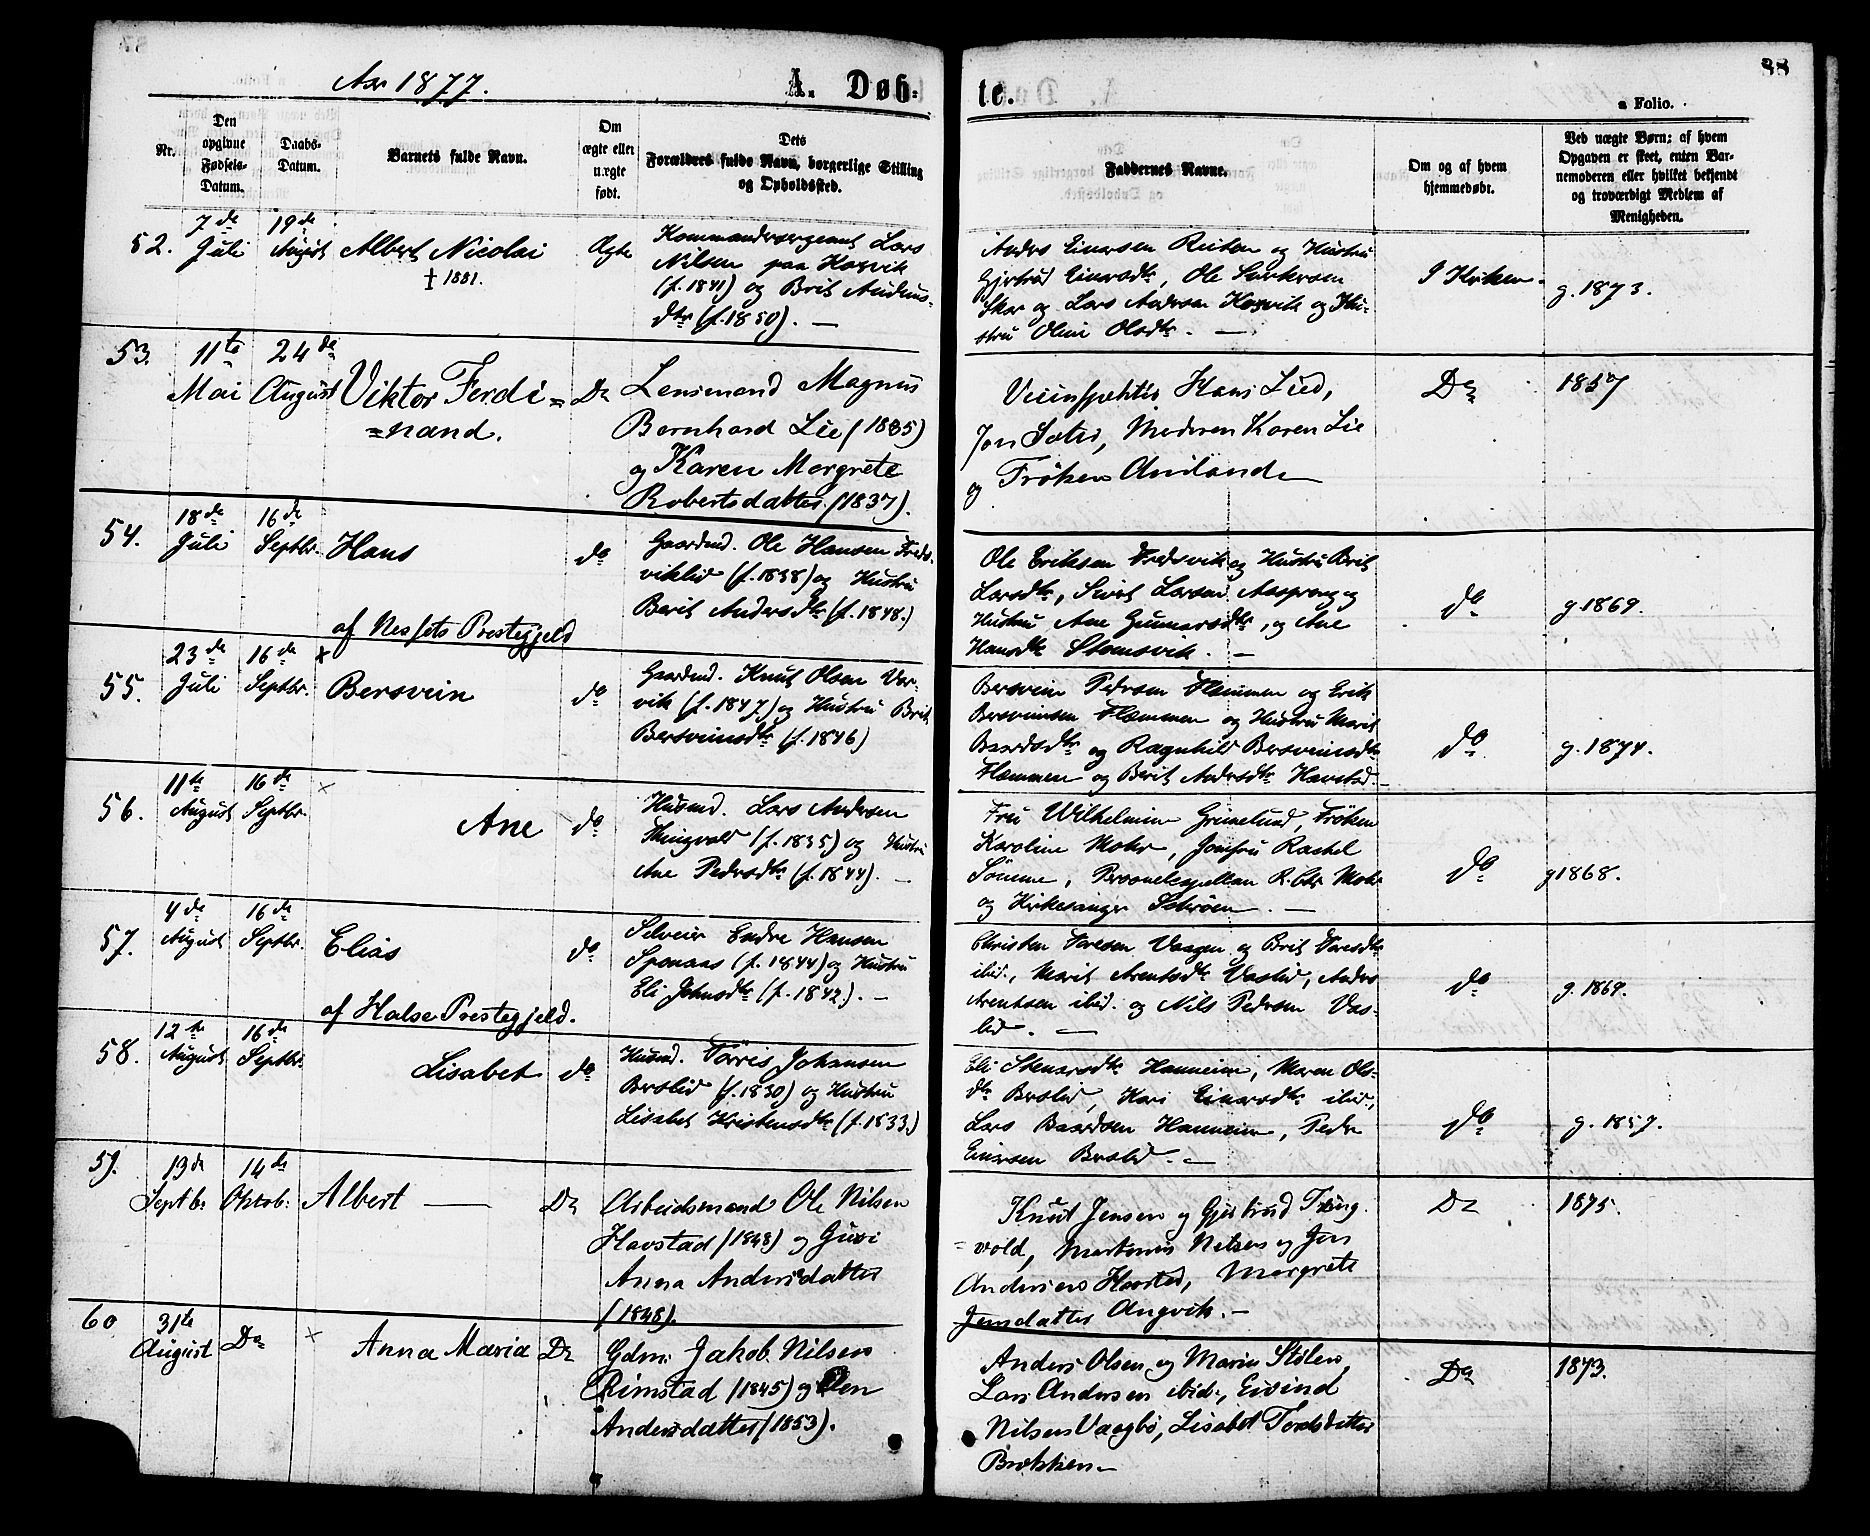 Aar 1877.
A. Døb-
te.
88
a Folio.
Nr.
Den opgivne Fødsels-Datum.
Daabs-Datum.
Barnets fulde Navn.
Om ægte eller uægte født.
Dets Forældres fulde Navn, borgerlige Stilling og Opholdssted.
Faddernes Navne.
Om og af hvem hjemmedøbt.
Ved uægte Børn; af hvem Opgaven er skeet, enten Barnemoderen eller hvilket bekjendt og troværdigt Medlem af Menigheden.
52.
7de Juli
19de August
Albert Nicolai
† 1881.
Ægte
Kommandersergeant Lars
Nilsen paa Korsvik
(f. 1841) og Brit Andens-
dtr (f. 1850). —
Anders Einersen Reiten og Hustru
Gjertrud Einersdtr, Ole Siversen
Skar og Lars Andersen Korsvik og Hu-
stru Oline Olsdtr. —
I Kirken.
g. 1873.
53.
11te Mai
24de August
Viktor Ferdi=
=nand.
Do
Lensmand Magnus
Bernhard Lie (1835)
og Karen Margrete
Robertsdatter (1837).
Veiinspektør Hans Lied,
Jon Sæter, Moderen Karen Lie
og Frøken
Do
1857
54.
18de Juli
16de Septbr.
Hans
do
Gaardmd. Ole Hansen Freds-
viklid (f. 1838) og Hustru
Berit Andersdtr (f. 1848.)
Ole Eriksen Fredsvik og Hustru Brit
Larsdtr, Sivert Larsen Aasprong og
Hustru Ane Gunnarsdtr, og Ane
Hansdtr Stomsvik. —
do
g 1869.
af Nessets Prestegjeld
55.
23de Juli
16de Septbr.
x
Bersvein
do
Gaardmd. Knut Olsen Vor-
vik (f. 1847) og Hustru Brit
Bersveinsdtr (f. 1846)
Bersvein Pedersen Flemmen og Erik
Bersveinsen Flemmen og Hustru Marit
Baardsdtr og Ragnhild Bersveinsdtr
Flemmen og Berit Andersdtr Havstad. —
do
g. 1874.
56.
11te August
16de Septbr.
x
Ane
do
Husmd. Lars Andersen
Thingvold (f. 1835) og Hustru
Ane Pedersdtr (f. 1844). —
Fru Wilhelmine Grimelund, Frøken
Karoline Mohr, Jomfru Rachel
Sømme, Personelcapellan R. Chr. Mohr
og Kirkesanger Schrøen. —
do
g 1868.
57.
4de August
16de Septbr.
Elias
do
Selveier Endre Hansen
Sponaas (f. 1844) og Hustru
Eli Johnsdtr (f. 1842). —
Christen Toresen Vaagen og Brit Toresdtr
ibid., Marit Arentsdtr Vaslid, Anders
Arentsen ibid. og Nils Pedersen Vas-
lid. —
do
g. 1869.
af Halse Prestegjeld.
58.
12te August
16de Septbr.
Lisabet
do
Husmd. Torris Johansen
Brølid (f. 1830) og Hustru
Lisabet Kristensdtr (f. 1833.)
Eli Stenersdtr Hanneim, Maren Ols-
dtr Brølid, Kari Einersdtr ibid.,
Lars Baardsen Hanneim, Peder
Einersen Brølid. —
do
g. 1857.
59.
13de Septbr.
14de Oktob:
Albert —
Do
Arbeidsmand Ole Nilsen
Havstad (1848) og Guri
Anna Andersdatter
(1848).
Knut Jensen og Gjertrud Ting-
=vold, Martinus Nilsen og Jon
Andersen Havstad, Margrete
Jensdatter Angvik. —
Do
1875.
60
31te August
Do
x
Anna Maria
Do
Gdm. Jakob Nilsen
Rimstad (1845) og
Andersdatter (1853).
Anders Olsen og Marin Stølen,
Lars Andersen ibid., Eivind
Nilsen Vaagbø, Lisabet Tordsdatter
Brækken. —
Do
1873.